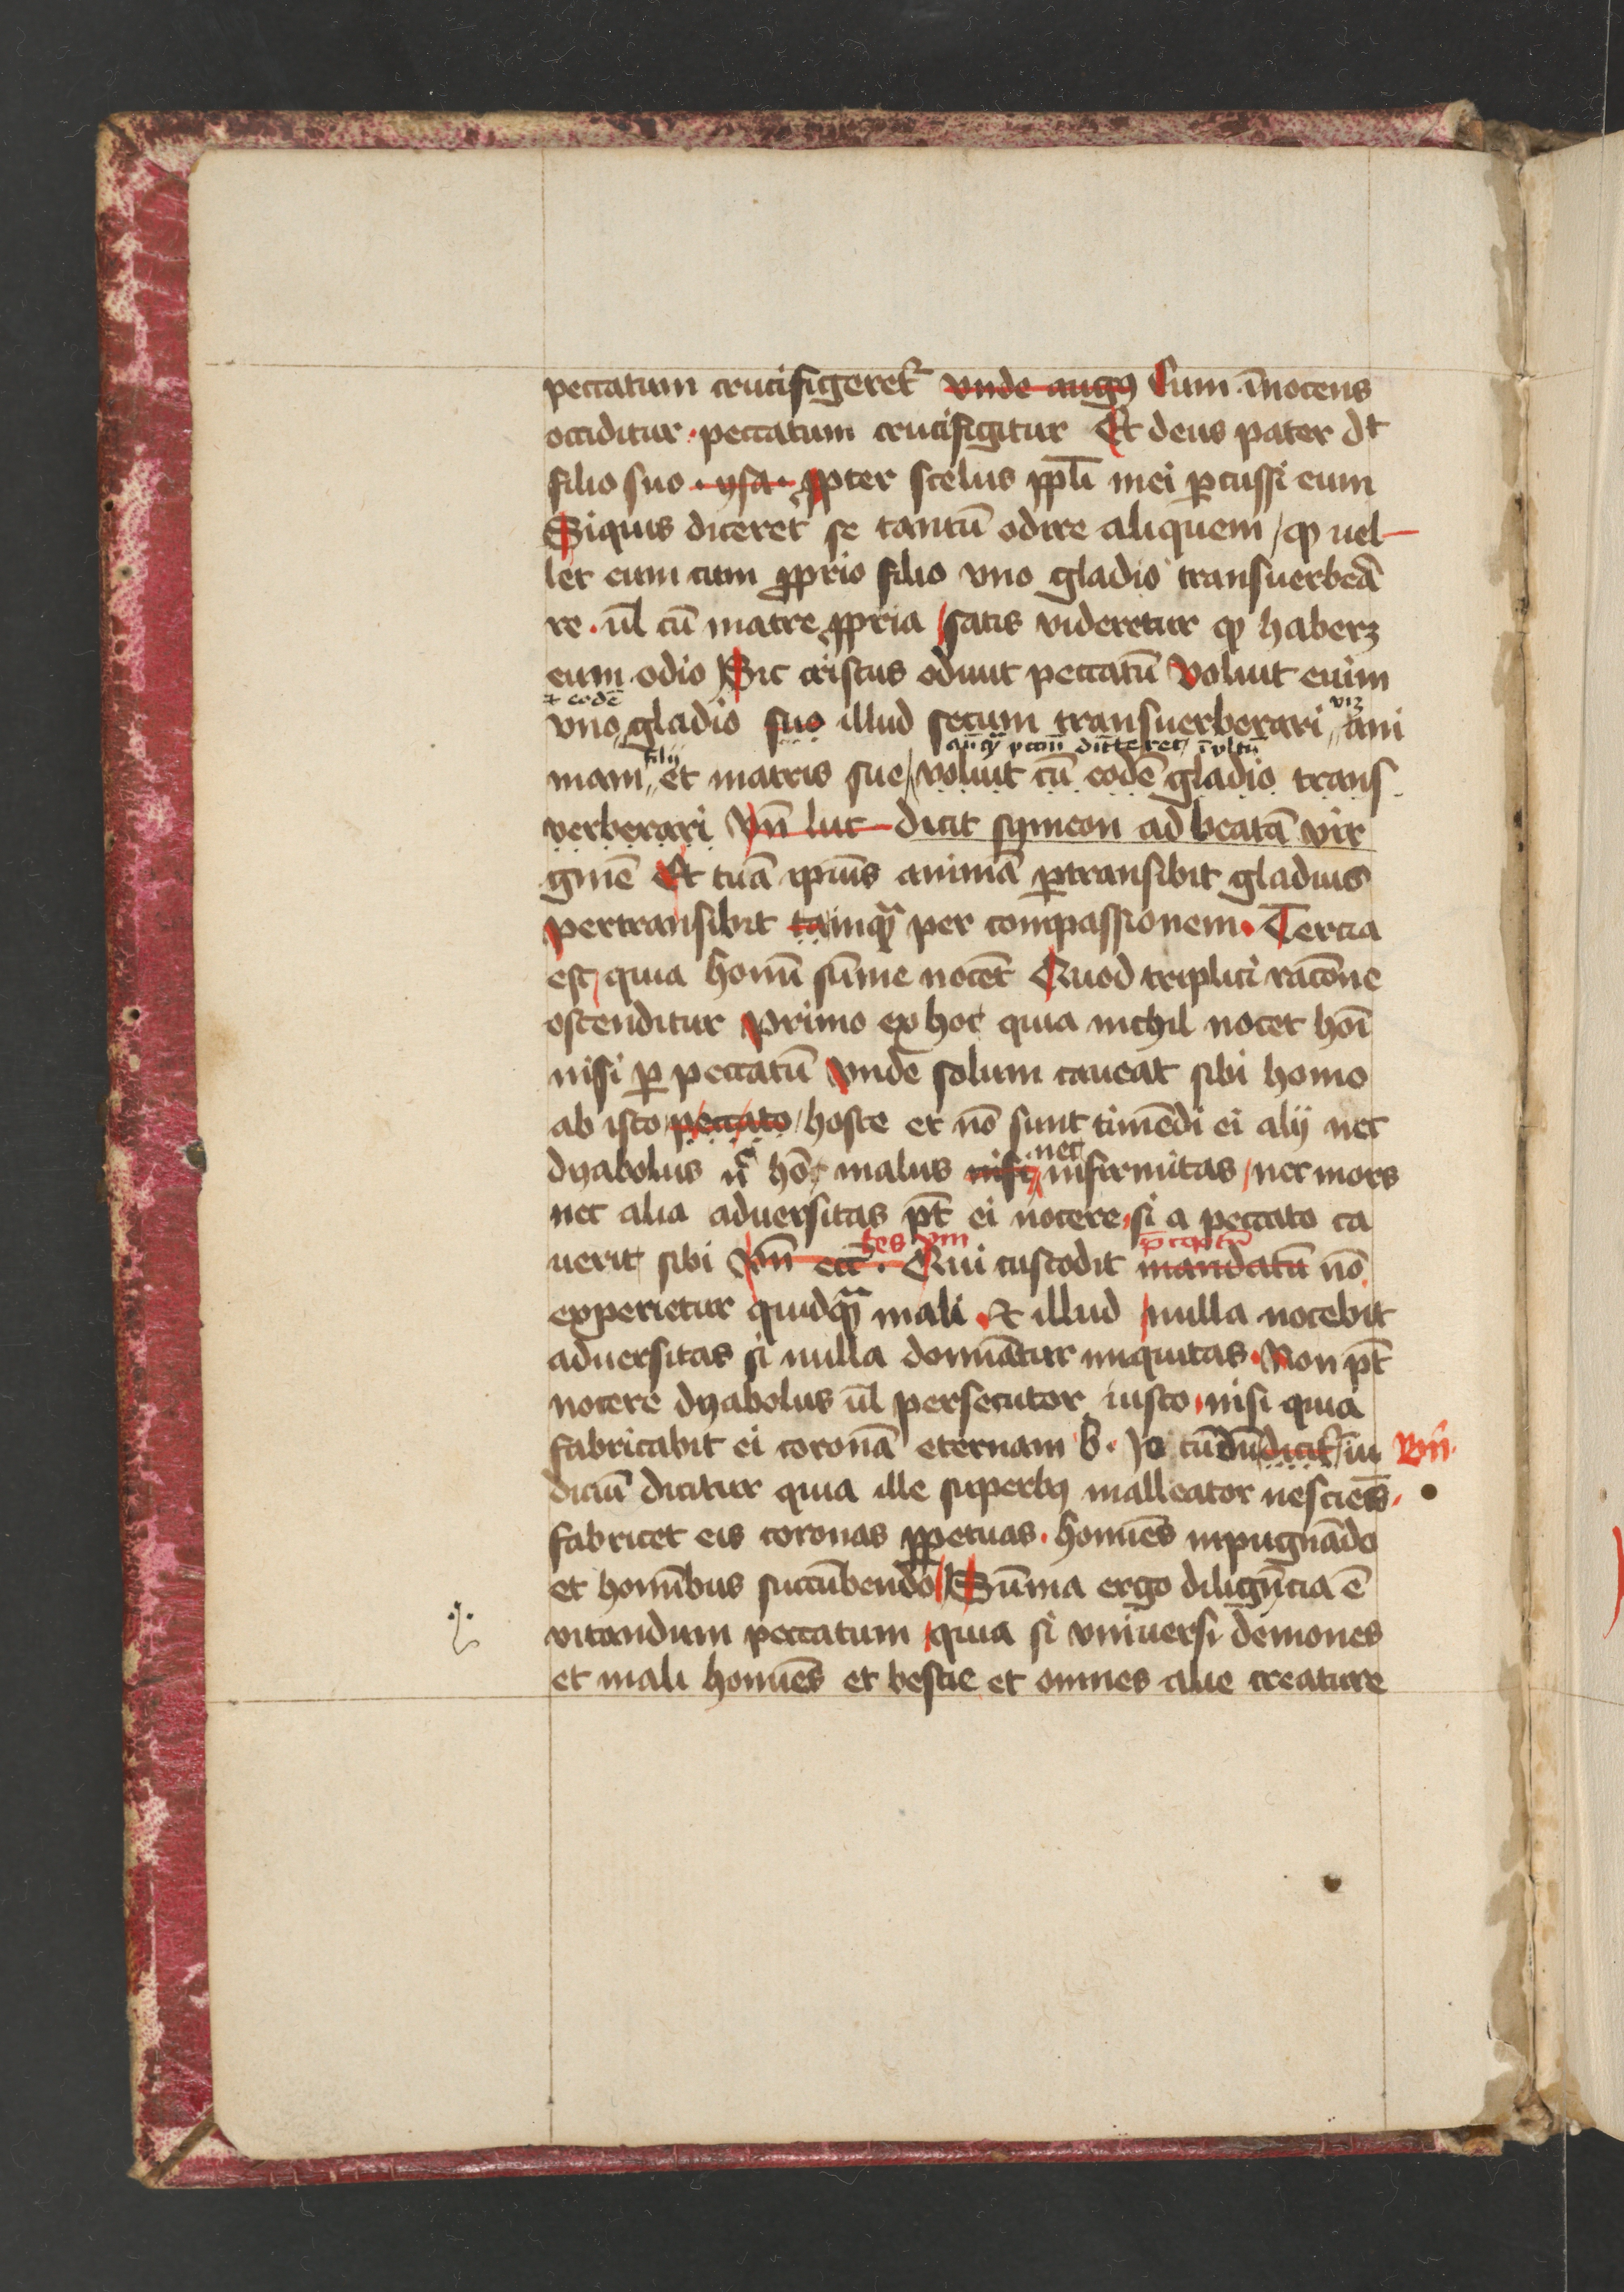 peccatum crucifigeret᷑ vnde augꝰ Cum īnocens
occiditur · peccatum crucifigitur Et deus pater dt̄
filio suo · ysa · ꝓpter scelus ppl̄i mei ꝑcussi eum
Siquis diceret se tantū odire aliquem / ꝙ uel
let eum cum ꝓprio filio vno gladio transuerbeā
re · ul̄ cū matre ꝓpria satis videretur ꝙ haberꝫ
eum odio Sic cristus odiuit peccatū Voluit enim
⁊ eodē viꝫ
vno gladio suo illud secum transuerberari ani
filij
mam et matris sue / voluit cū eodē gladio trans
verberari Vn̄ luc dicit symeon ad beatā vir
ginē Et tuā ipīus animā ꝑtransibit gladius
pertransibit tamqᷓ per compassionem · Tercia
est / quia homī sūme nocet Quod triplici racōne
ostenditur Primo ex hoc quia nichil nocet hoī
nisi ꝑ peccatū Vnde solum caueat sibi homo
ab isto peccato / hoste et nō sunt timēdi ei alij nec
nec
dyabolus nᶜ hō malus nisi infirmitas / nec mors
nec alia aduersitas pt̄ ei nocere si a peccato ca
tes p̄ceptū
uerit sibi Vn̄ ecc̄ · Qui custodit mandatū nō
experietur quidqᷓ mali · Et illud nulla nocebit
aduersitas si nulla domīatur iniquitas · Non pt̄
nocere dyabolus ul̄ persecutor iusto nisi quia
fabricabit ei coronā eternam Vn̄
diciū dicitur quia ille superbꝰ malleator nesciēs
fabricet eis coronas ꝑpetuas · homīes inpugnādo
et homībus succūbendo Sūma ergo diligēcia ē
vitandum peccatum quia si vniuersi demones
et mali homīes et bestie et omnes alie creature